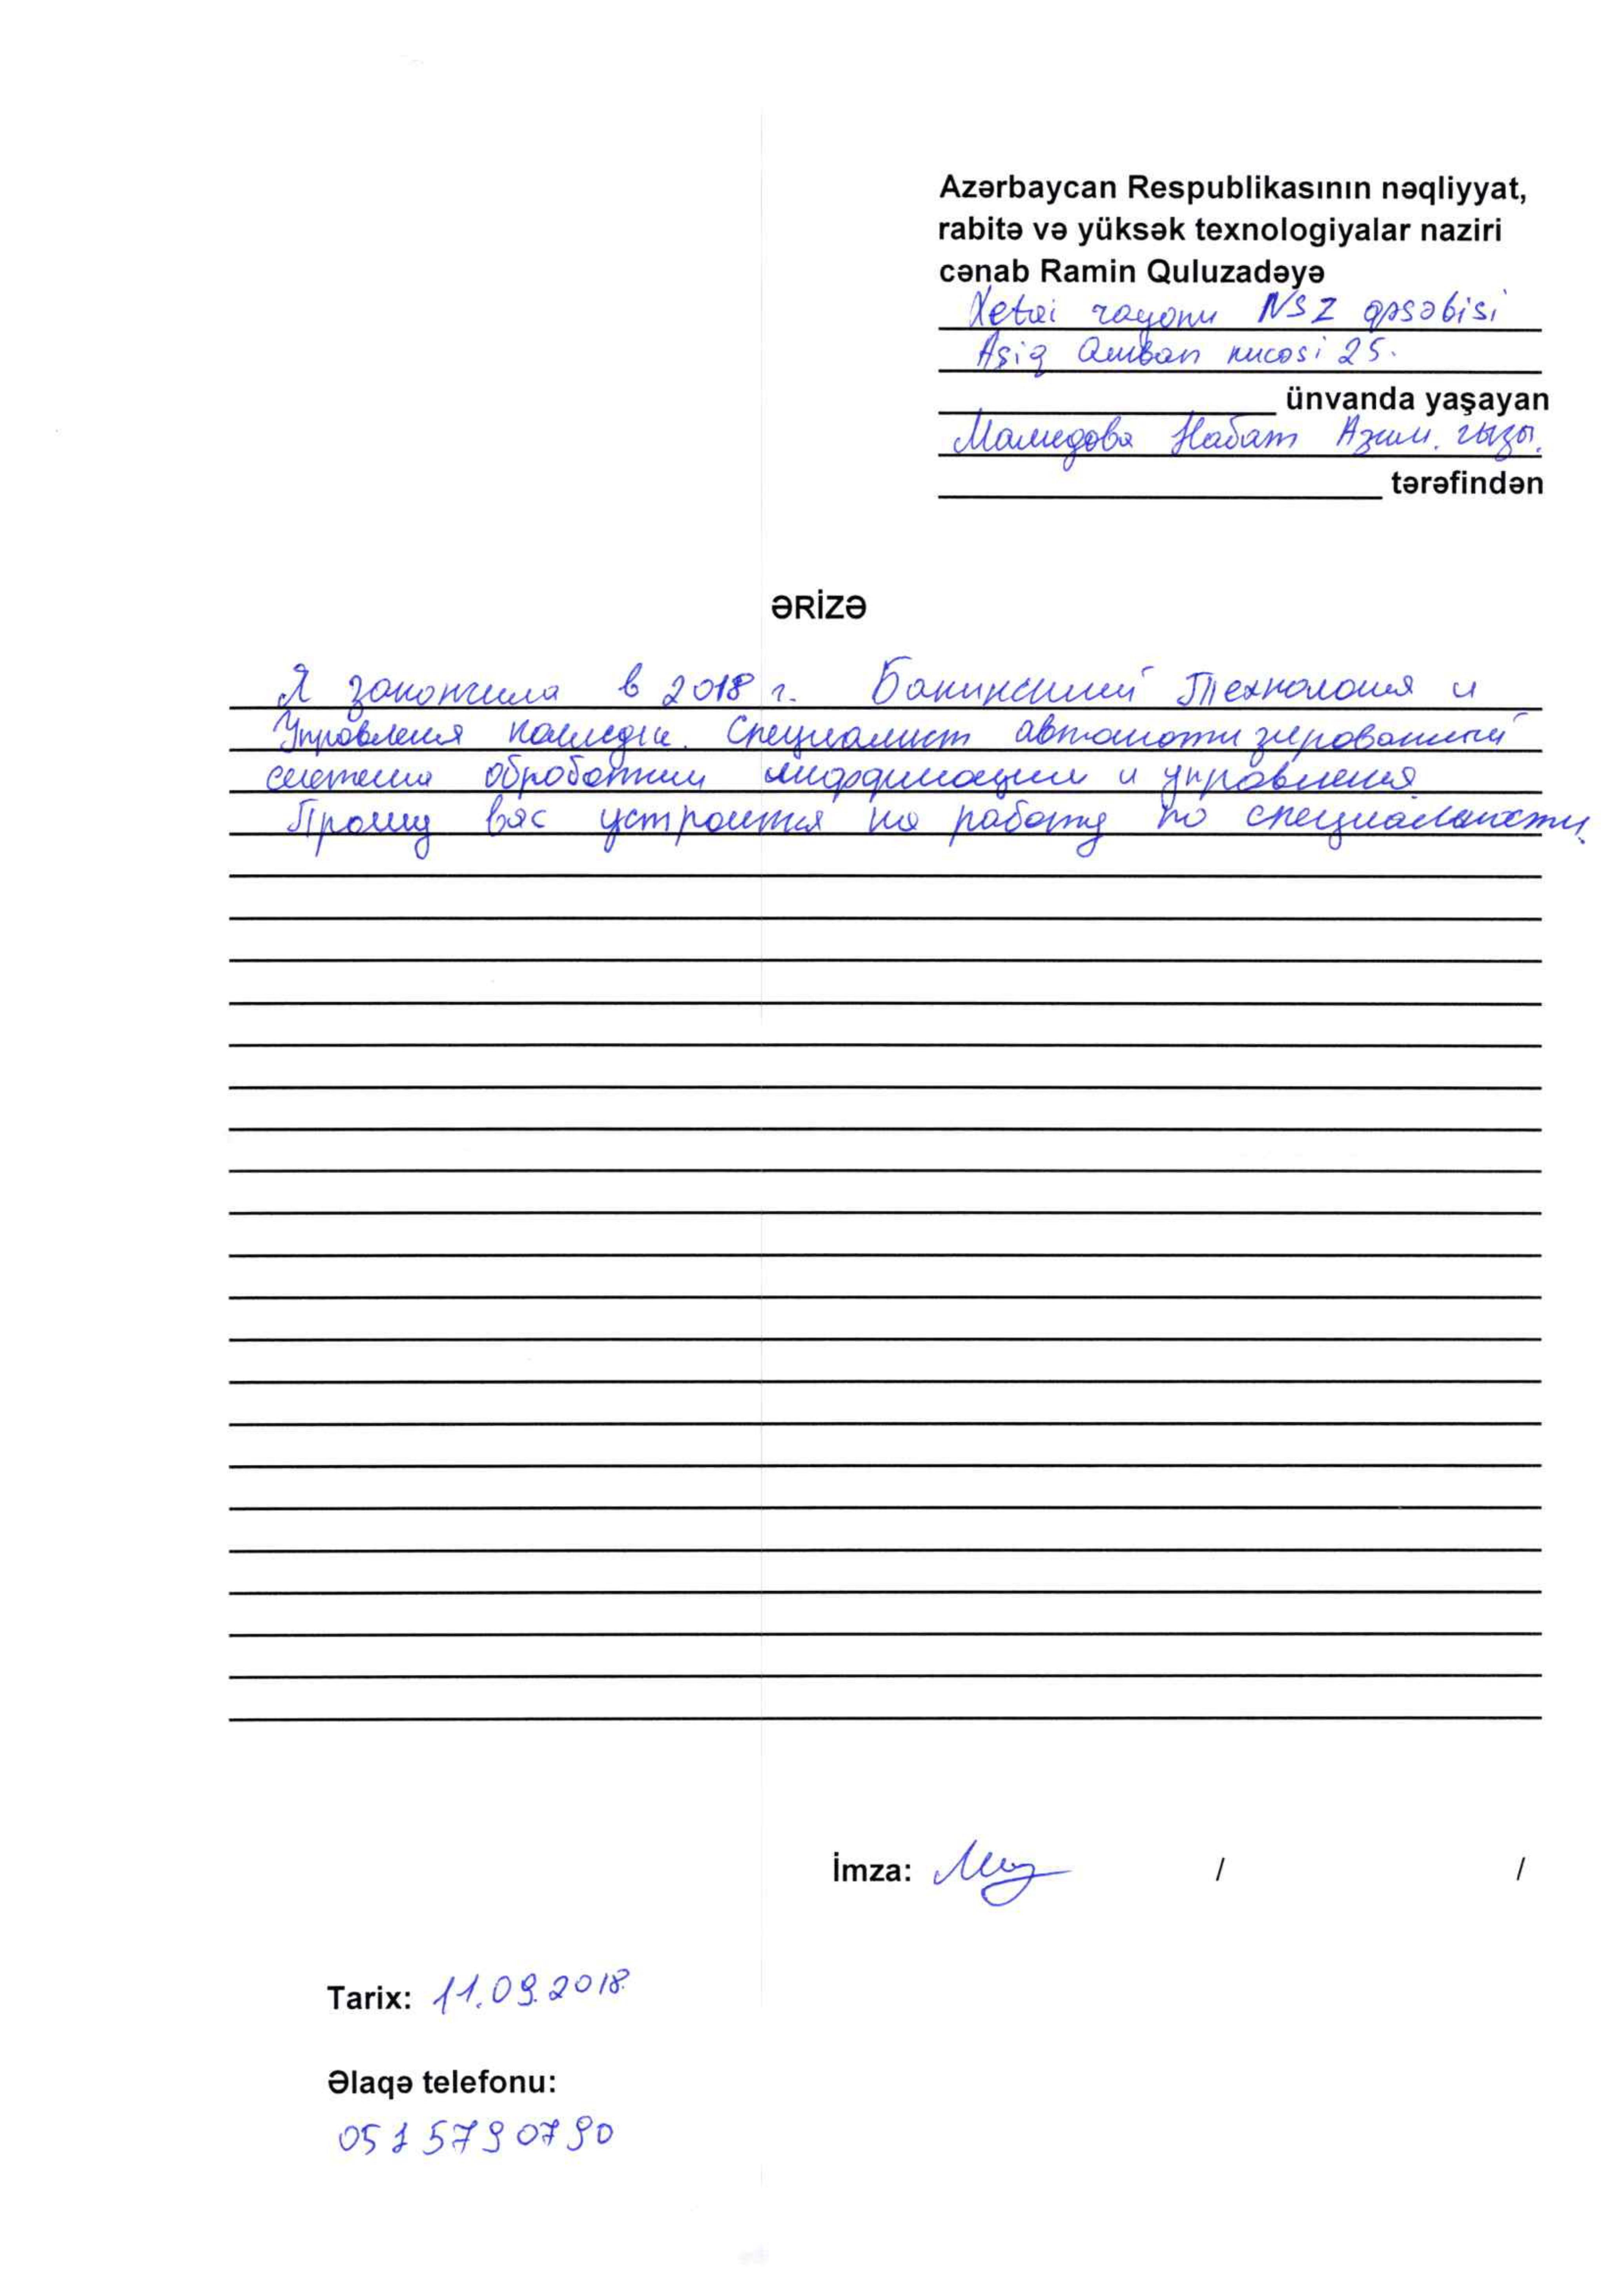 Azərbaycan Respublikasının nəqliyyat,
rabitə və yüksək texnologiyalar naziri
cənab Ramin Quluzadəyə
Xetai rayonu NSZ qəsəbisi
Aşiq kucəsi 25.
ünvanda yaşayan
Мамедова Набат Азим. гызы.
tərəfindən
ƏRİZƏ
Я закончила в 2018 г. Бакинский Технология и
Управления колледж. Специалист автоматизированный
система обработки информации и управления
Прошу вас устроится на работу по специальности.
İmza: / /
Tarix: 11.09.2018
Əlaqə telefonu:
051 579 07 90